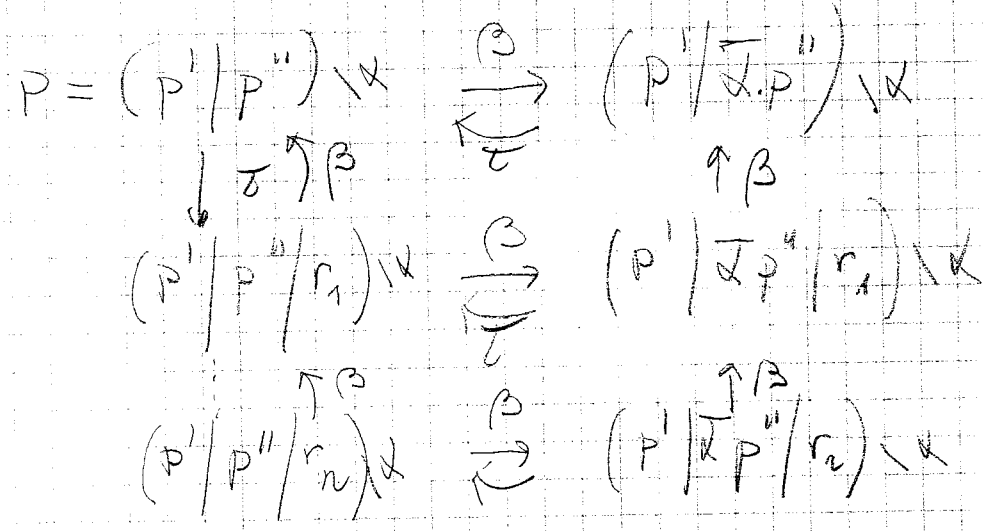 P = (p' | p'') \ α →β (p' | ᾱ.p'') \ α
τ
↓ τ ↑ β ↑ β
(p' | p'' | r₁) \ α →β (p' | ᾱ p'' | r₁) \ α
τ
↑ β ↑ β
(p' | p'' | r₂) \ α →β (p' | ᾱ p'' | r₂) \ α